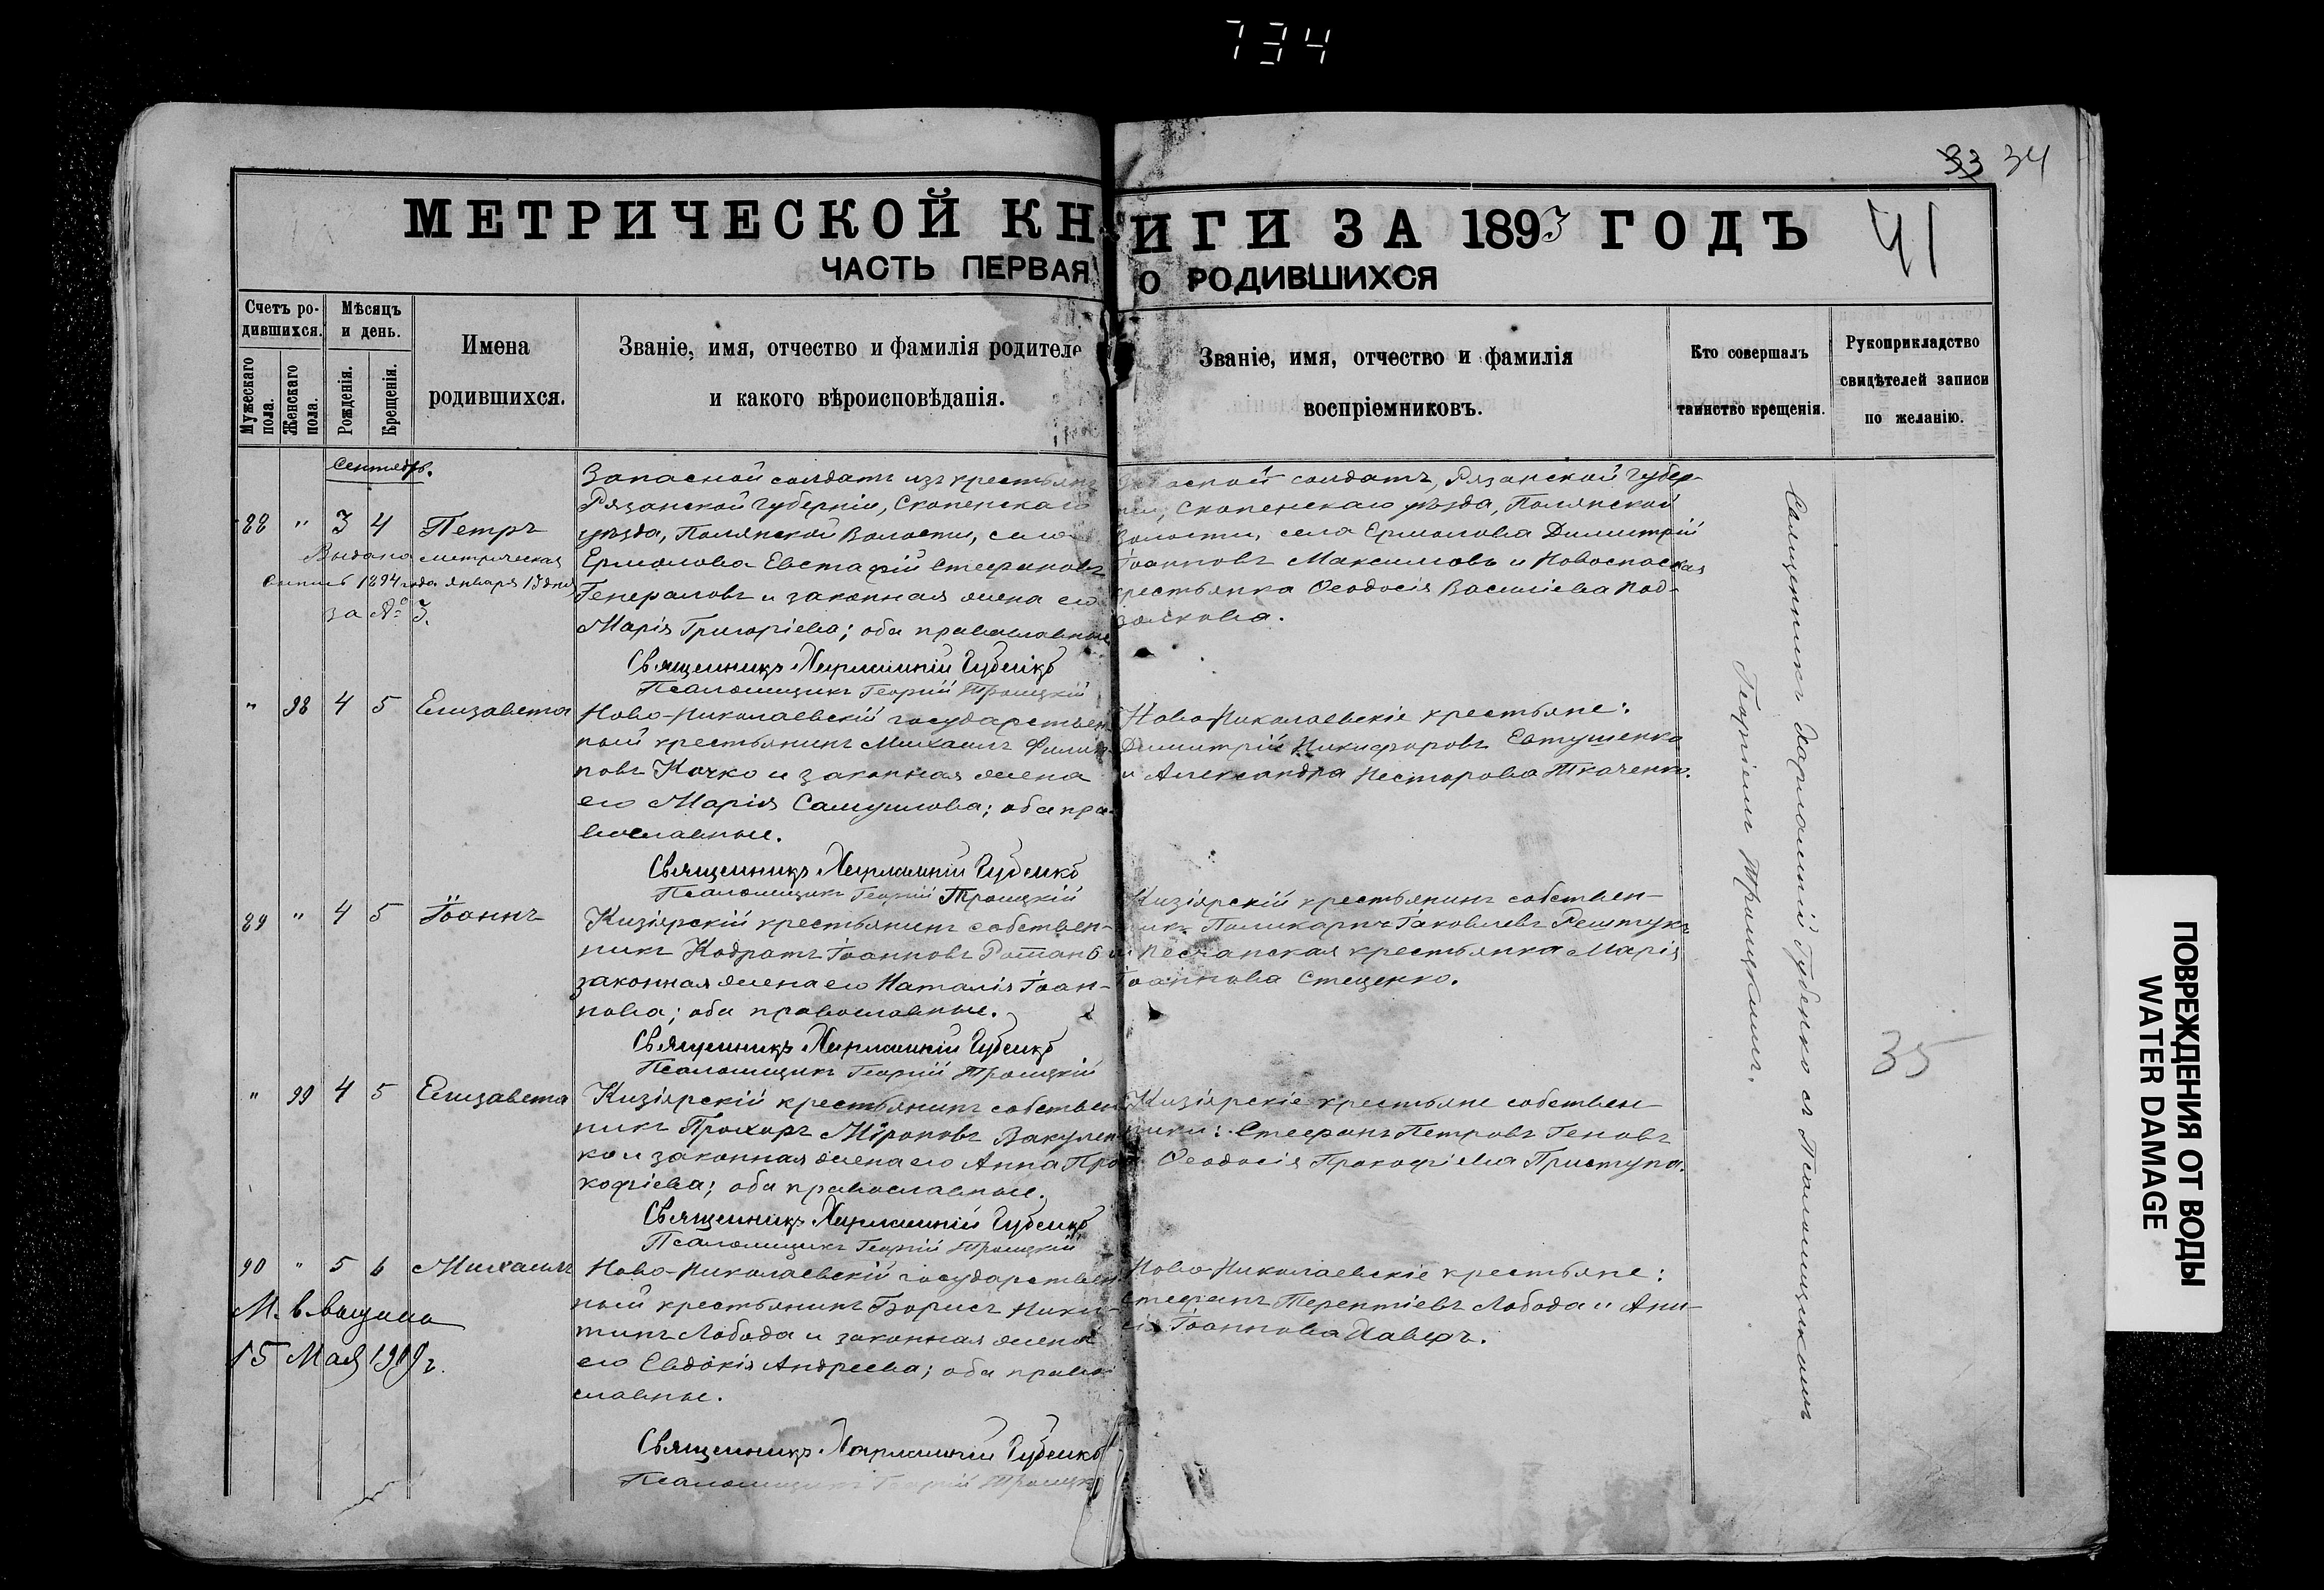 734
33 34
МЕТРИЧЕСКОЙ КНИГИ ЗА 1893 ГОДЪ
41
ЧАСТЬ ПЕРВАЯ О РОДИВШИХСЯ
Счетъ ро-
дившихся.
Мужескаго пола.
Женскаго пола.
Мѣсяцъ
и день.
Рожденія.
Крещенія.
Имена
родившихся.
Званіе, имя, отчество и фамилія родителе
и какого вѣроисповѣданія.
Званіе, имя, отчество и фамилія
воспріемниковъ.
Кто совершалъ
таинство крещенія.
Рукоприкладство
свидѣтелей записи
по желанію.
Сентябрь.
88 " 3 4 Петръ
Выдана метрическая
выпись 1894 года января 13 дня
за № 3.
Запасной солдатъ изъ крестьянъ
Рязанской Губерніи, Скопенскаго
уѣзда, Полянской Волости, села
Ермолова Евстафій Стефановъ
Генераловъ и законная жена его
Марія Григоріева; оба православные
Священникъ Харлампій Губенко
Псаломщикъ Георгій Троицкій
Запасной солдатъ, Рязанской Губер-
ніи, Скопенскаго уѣзда, Полянской
Волости, села Ермолова Димитрій
Іоанновъ Максимовъ и Новоспаская
крестьянка Ѳеодосія Василіева Под-
" 98 4 5 Елизавета
Ново-Николаевскій государствен
ный крестьянинъ Михаилъ Филип-
повъ Кочко и законная жена
его Марія Самуилова; оба пра-
вославные.
Священникъ Харлампій Губенко
Псаломщикъ Георгій Троицкій
Ново-Николаевскіе крестьяне:
Димитрій Никифоровъ Евтушенко
и Александра Несторова Ткаченко.
89 " 4 5 Іоаннъ
Кизіярскій крестьянинъ собствен-
никъ Кодратъ Іоанновъ Ротань и
законная жена его Наталія Іоан-
нова; оба православные.
Священникъ Харлампій Губенко
Псаломщикъ Георгій Троицкій
Кизіярскій крестьянинъ собствен-
никъ Поликарпъ Іаковлевъ Рештукъ
и Песчанская крестьянка Марія
Іоаннова Стеценко.
" 99 4 5 Елизавета
Кизіярскій крестьянинъ собствен
никъ Прохоръ Мѵроновъ Вакулен
ко и законная жена его Анна Про
кофіева; оба православные.
Священникъ Харлампій Губенко
Псаломщикъ Георгій Троицкій
Кизіярскіе крестьяне собствен-
ники: Стефанъ Петровъ Геновъ
и Ѳеодосія Прокофіева Приступа.
90 " 5 6 Михаилъ
М. в. выдана
15 Мая 1919 г.
Ново-Николаевскій государствен
ный крестьянинъ Борисъ Ники-
тинъ Лобода и законная жена
его Евдокія Андреева; оба право
славные.
Священникъ Харлампій Губенко
Псаломщикъ Георгій Троицкій
Ново-Николаевскіе крестьяне:
Стефанъ Терентіевъ Лобода и Ани-
сія Іоаннова
Священникъ Харлампій Губенко съ Псаломщикомъ
Георгіемъ Троицкимъ.
35
ПОВРЕЖДЕНИЯ ОТ ВОДЫ
WATER DAMAGE